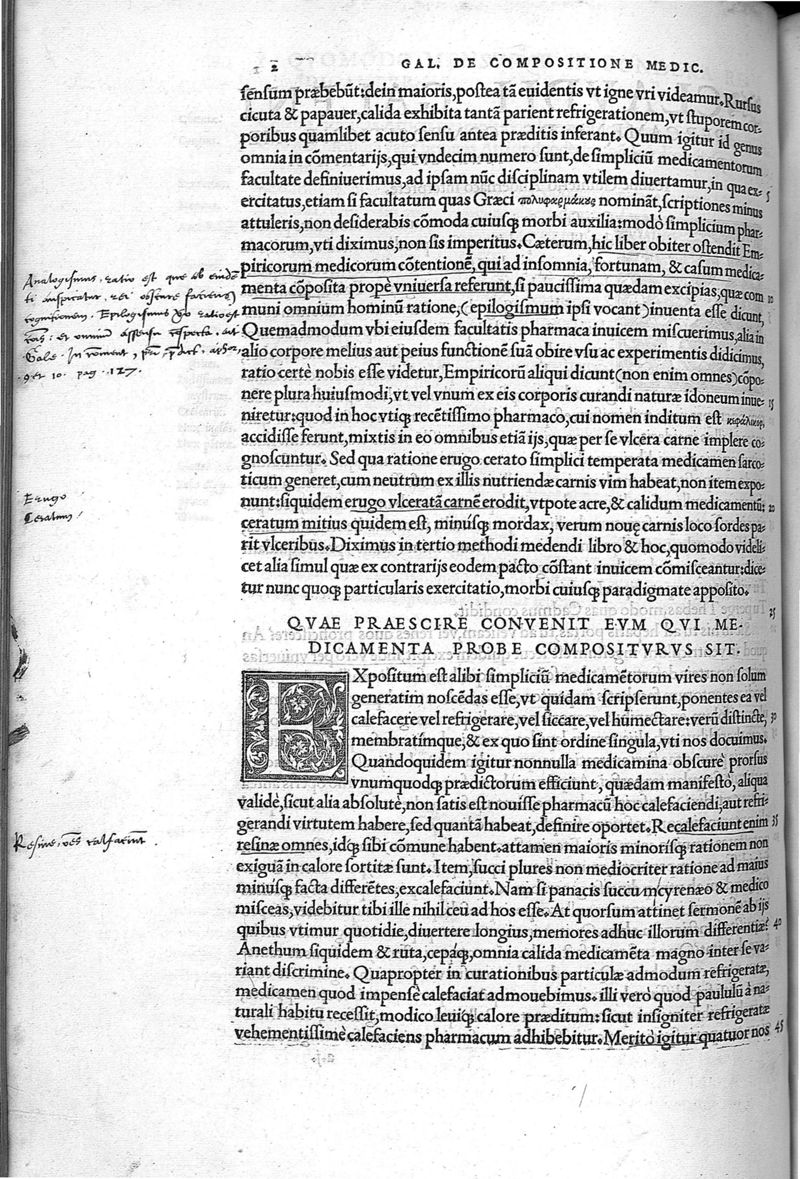 2
GAL. DE COMPOSITIONE MEDIC.
sensum præbebūt:dein maioris,postea tā euidentis vt igne vri videamur.Rursus
cicuta & papauer,calida exhibita tantā parient refrigerationem,vt stuporem cor-
poribus quamlibet acuto sensu antea præditis inferant. Quum igitur id genus
omnia in cōmentarijs,qui vndecim numero sunt,de simpliciū medicamentorum
facultate definiuerimus,ad ipsam nūc disciplinam vtilem diuertamur,in qua ex-
5
ercitatus,etiam si facultatum quas Græci πολυφαρμάκους nomināt,scriptiones minus
attuleris,non desiderabis cōmoda cuiusq; morbi auxilia:modò simplicium phar-
macorum,vti diximus,non sis imperitus.Cæterum,hic liber obiter ostendit Em-
piricorum medicorum cōtentionē,qui ad insomnia,fortunam, & casum medica-
menta cōposita propè vniuersa referunt,si paucissima quædam excipias,quæ com
10
muni omnium hominū ratione,(epilogismum ipsi vocant)inuenta esse dicunt,
Quemadmodum vbi eiusdem facultatis pharmaca inuicem miscuerimus,alia in
alio corpore melius aut peius functionē suā obire vsu ac experimentis didicimus,
ratio certè nobis esse videtur,Empiricorū aliqui dicunt(non enim omnes)cōpo-
nere plura huiusmodi,vt vel vnum ex eis corporis curandi naturæ idoneum inue-
15
niretur:quod in hoc vtiq; recētissimo pharmaco,cui nomen inditum est
accidisse ferunt,mixtis in eo omnibus etiā ijs,quæ per se vlcera carne implere co-
gnoscuntur. Sed qua ratione erugo cerato simplici temperata medicamen sarco-
ticum generet,cum neutrum ex illis nutriendæ carnis vim habeat,non item expo-
nunt:siquidem erugo vlceratā carnē erodit,vtpote acre,& calidum medicamentū:
20
ceratum mitius quidem est, minusq; mordax, verum nouę carnis loco sordes pa-
rit vlceribus.Diximus in tertio methodi medendi libro & hoc,quomodo videli-
cet alia simul quæ ex contrarijs eodem pacto cōstant inuicem cōmisceantur:dice-
tur nunc quoq; particularis exercitatio,morbi cuiusq; paradigmate apposito.
25
QVAE PRAESCIRE CONVENIT EVM QVI ME-
DICAMENTA PROBE COMPOSITVRVS SIT.
EXpositum est alibi simpliciū medicamētorum vires non solum
generatim noscēdas esse,vt quidam scripserunt,ponentes ea vel
calefacere vel refrigerare,vel siccare,vel humectare:verū distincte,
30
membratímque,& ex quo sint ordine singula,vti nos docuimus.
Quandoquidem igitur nonnulla medicamina obscurè prorsus
vnumquodq; prædictorum efficiunt, quædam manifestò, aliqua
validè,sicut alia absolutè,non satis est nouisse pharmacū hoc calefaciendi,aut refri-
gerandi virtutem habere,sed quantā habeat,definire oportet.Recalefaciunt enim
35
resinæ omnes,idq; sibi cōmune habent.attamen maioris minorisq; rationem non
exiguā in calore sortitæ sunt.Item,succi plures non mediocriter ratione ad maius
minusq; facta differētes,excalefaciunt.Nam si panacis succū cyrenæo & medico
misceas,videbitur tibi ille nihil ceu ad hos esse.At quorsum attinet sermonē ab ijs
quibus vtimur quotidie,diuertere longius,memores adhuc illorum differentiæ?
40
Anethum siquidem & ruta,cepáq;,omnia calida medicamēta magno inter se va-
riant discrimine. Quapropter in curationibus particulæ admodum refrigeratæ,
medicamen quod impensè calefaciat admouebimus.illi verò quod paululū à na-
turali habitu recessit,modico leuiq; calore præditum:sicut insigniter refrigeratæ
vehementissimè calefaciens pharmacum adhibebitur.Meritò igitur quatuor nos
45
Analogismus, ratio est que ab euiden
ti
Epilogismus
10. pag. 127.
Erugo
Ceratum
Resine, oēs calfaciūt.